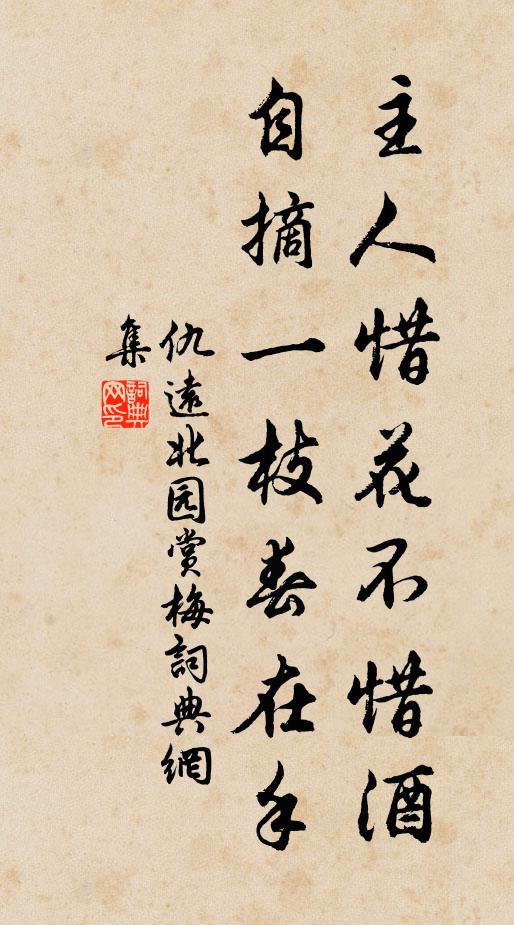 主人惜花不惜酒
自摘一枝春在手
仇遠北园赏梅詞典網
集
詞典网印